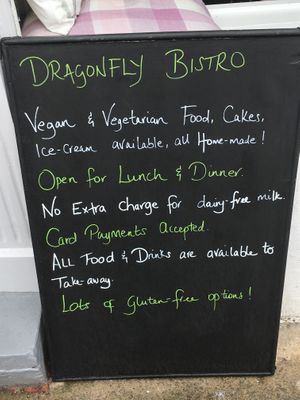 DRAGONFLY BISTRO
Vegan & Vegetarian Food, Cakes,
Ice-cream available, all Home-made!
Open for Lunch & Dinner.
No Extra charge for dairy-free milk.
Card Payments Accepted.
ALL Food & Drinks are available to
Take-away.
Lots of Gluten-free options!